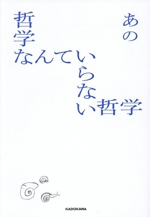 あの
哲学
なんていらない哲学
KADOKAWA